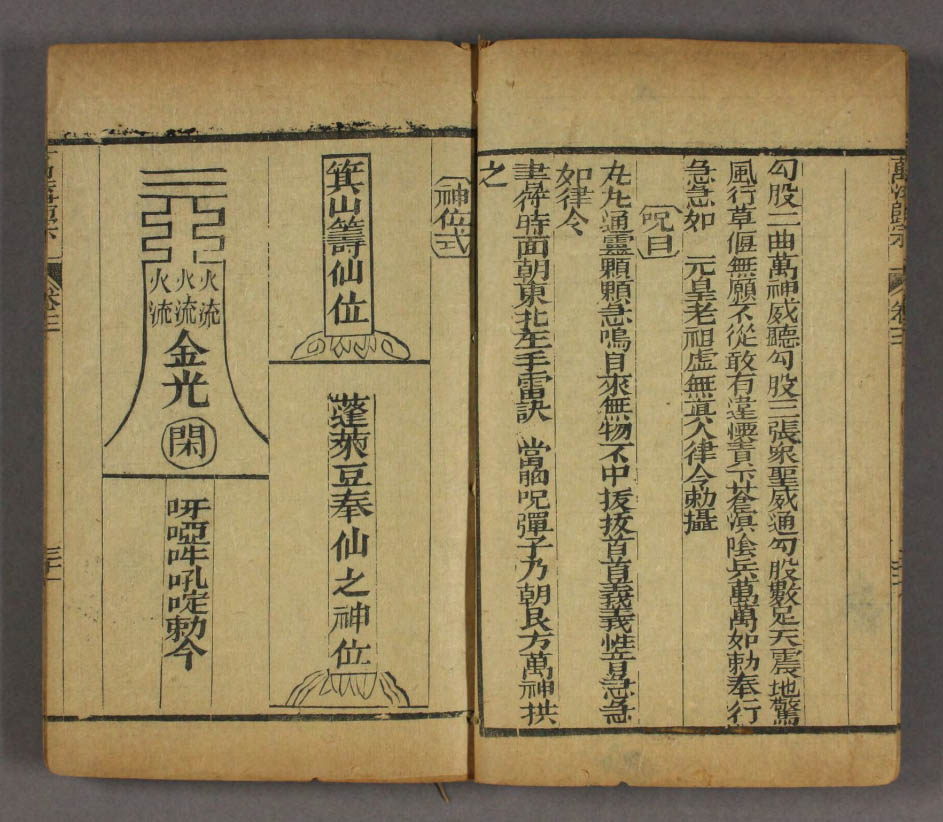 勾股二曲萬神咸聽勾股三張衆聖咸通勾股數足天震地驚
風行草偃無願不從敢有違慢責下蒼溟陰兵萬萬如勅奉行
急急如 元皇老祖虛無眞人律令勅攝
呪曰
尢尢通靈顆顆急鳴自來無物不中拔拔首首義義性音急急
如律令
書符時面朝東北左手雷訣 當腦呪彈子乃朝艮方萬神拱
之
萬法歸宗
卷三
神位式
箕山籌仙位
蓬萊豆奉仙之神位
火流
火流
火流
金光
閑
呀啞吽吼啶勅令
卷三